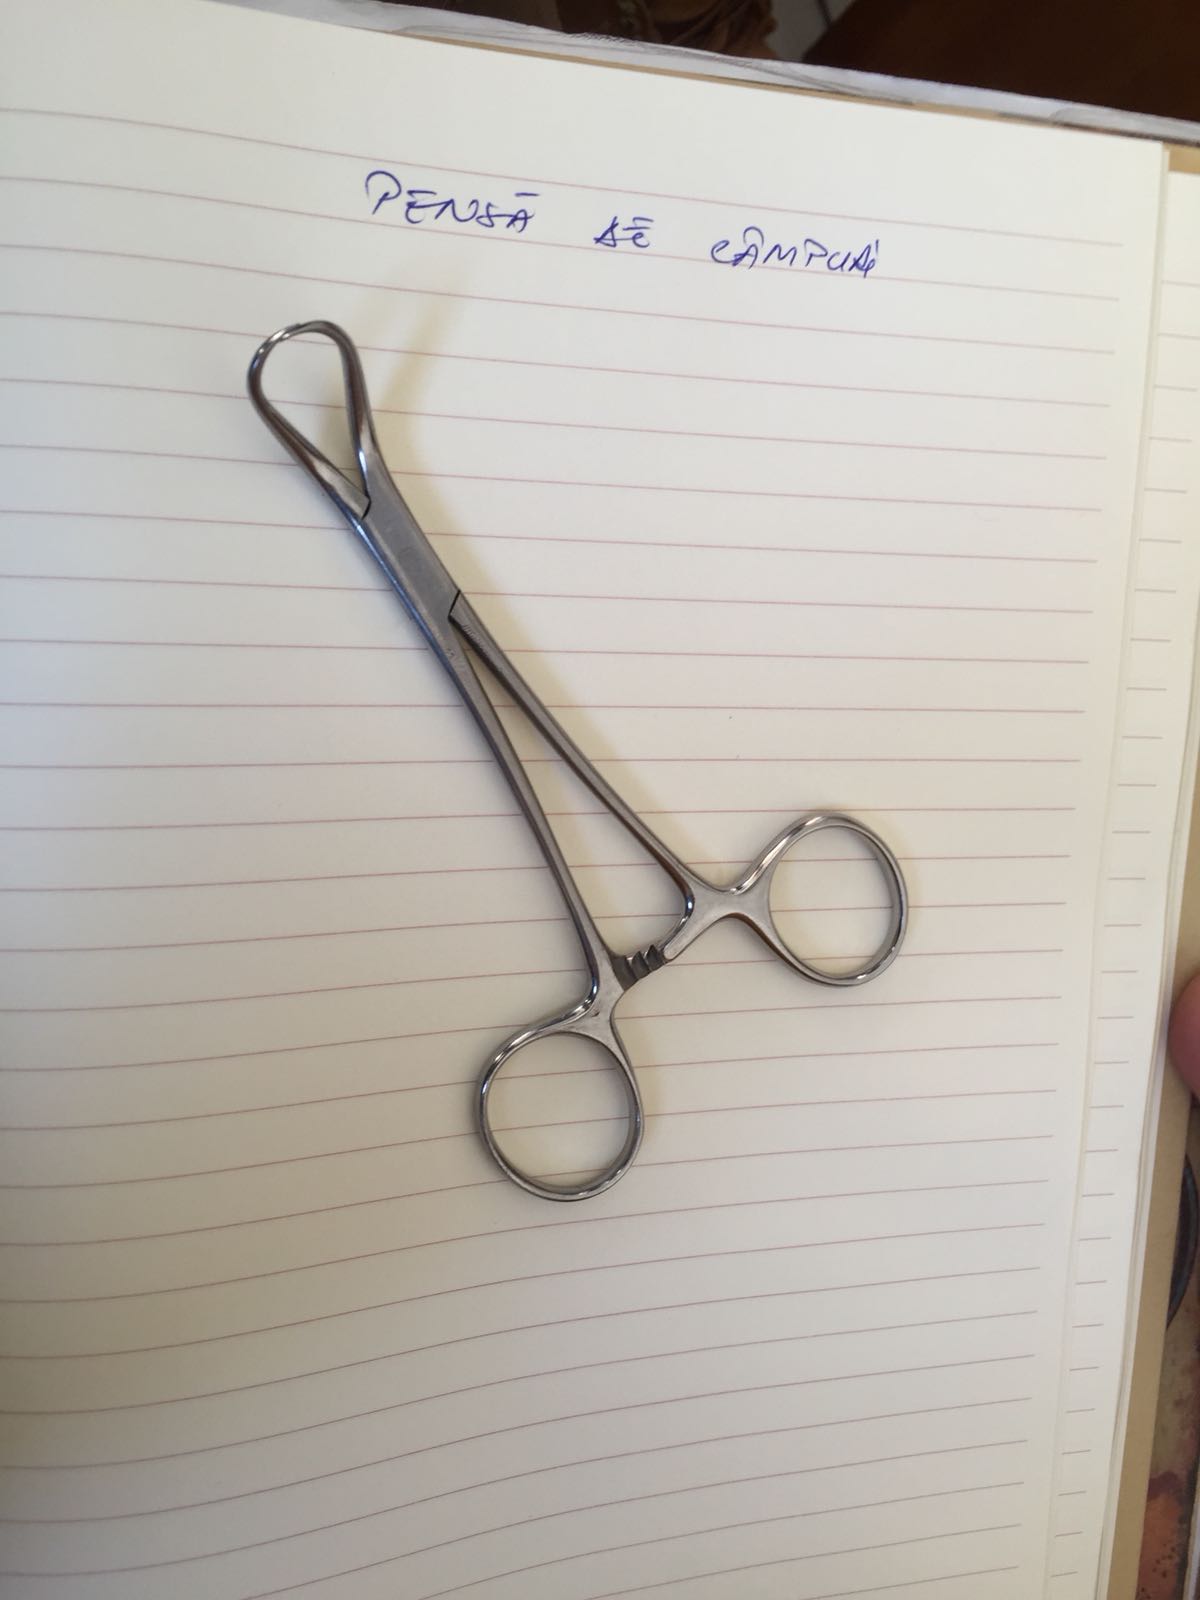 PENSĀ DE CÂMPURI